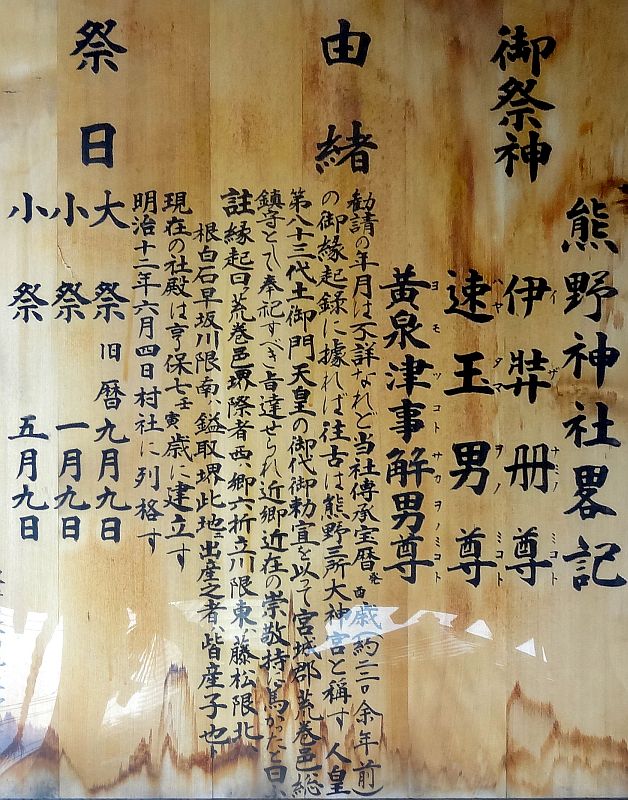 熊野神社畧記
御祭神
伊弉册尊
イザナミノミコト
速玉男尊
ハヤタマヲノミコト
黄泉津事解男尊
ヨモツコトサカヲノミコト
由緒
勧請の年月は不詳なれど当社傳承宝暦癸酉歳(約二三〇余年前)
の御縁起録に據れば往古は熊野三所大神宮と称す 人皇
第八十三代土御門天皇の御代御勅宣を以って宮城郡荒巻邑総
鎮守として奉祀すべき旨達せられ近郷近在の崇敬持に篤かったと曰ふ
註 縁起曰荒巻邑堺際者西、郷六折立川限東、藤松限北、
根白石早坂川限南、鎰取堺此地ニ出産之者、皆産子也ト
現在の社殿は亨保七壬寅歳に建立す
明治十二年六月四日村社に列格す
祭日
大祭 旧暦九月九日
小祭 一月九日
小祭 五月九日